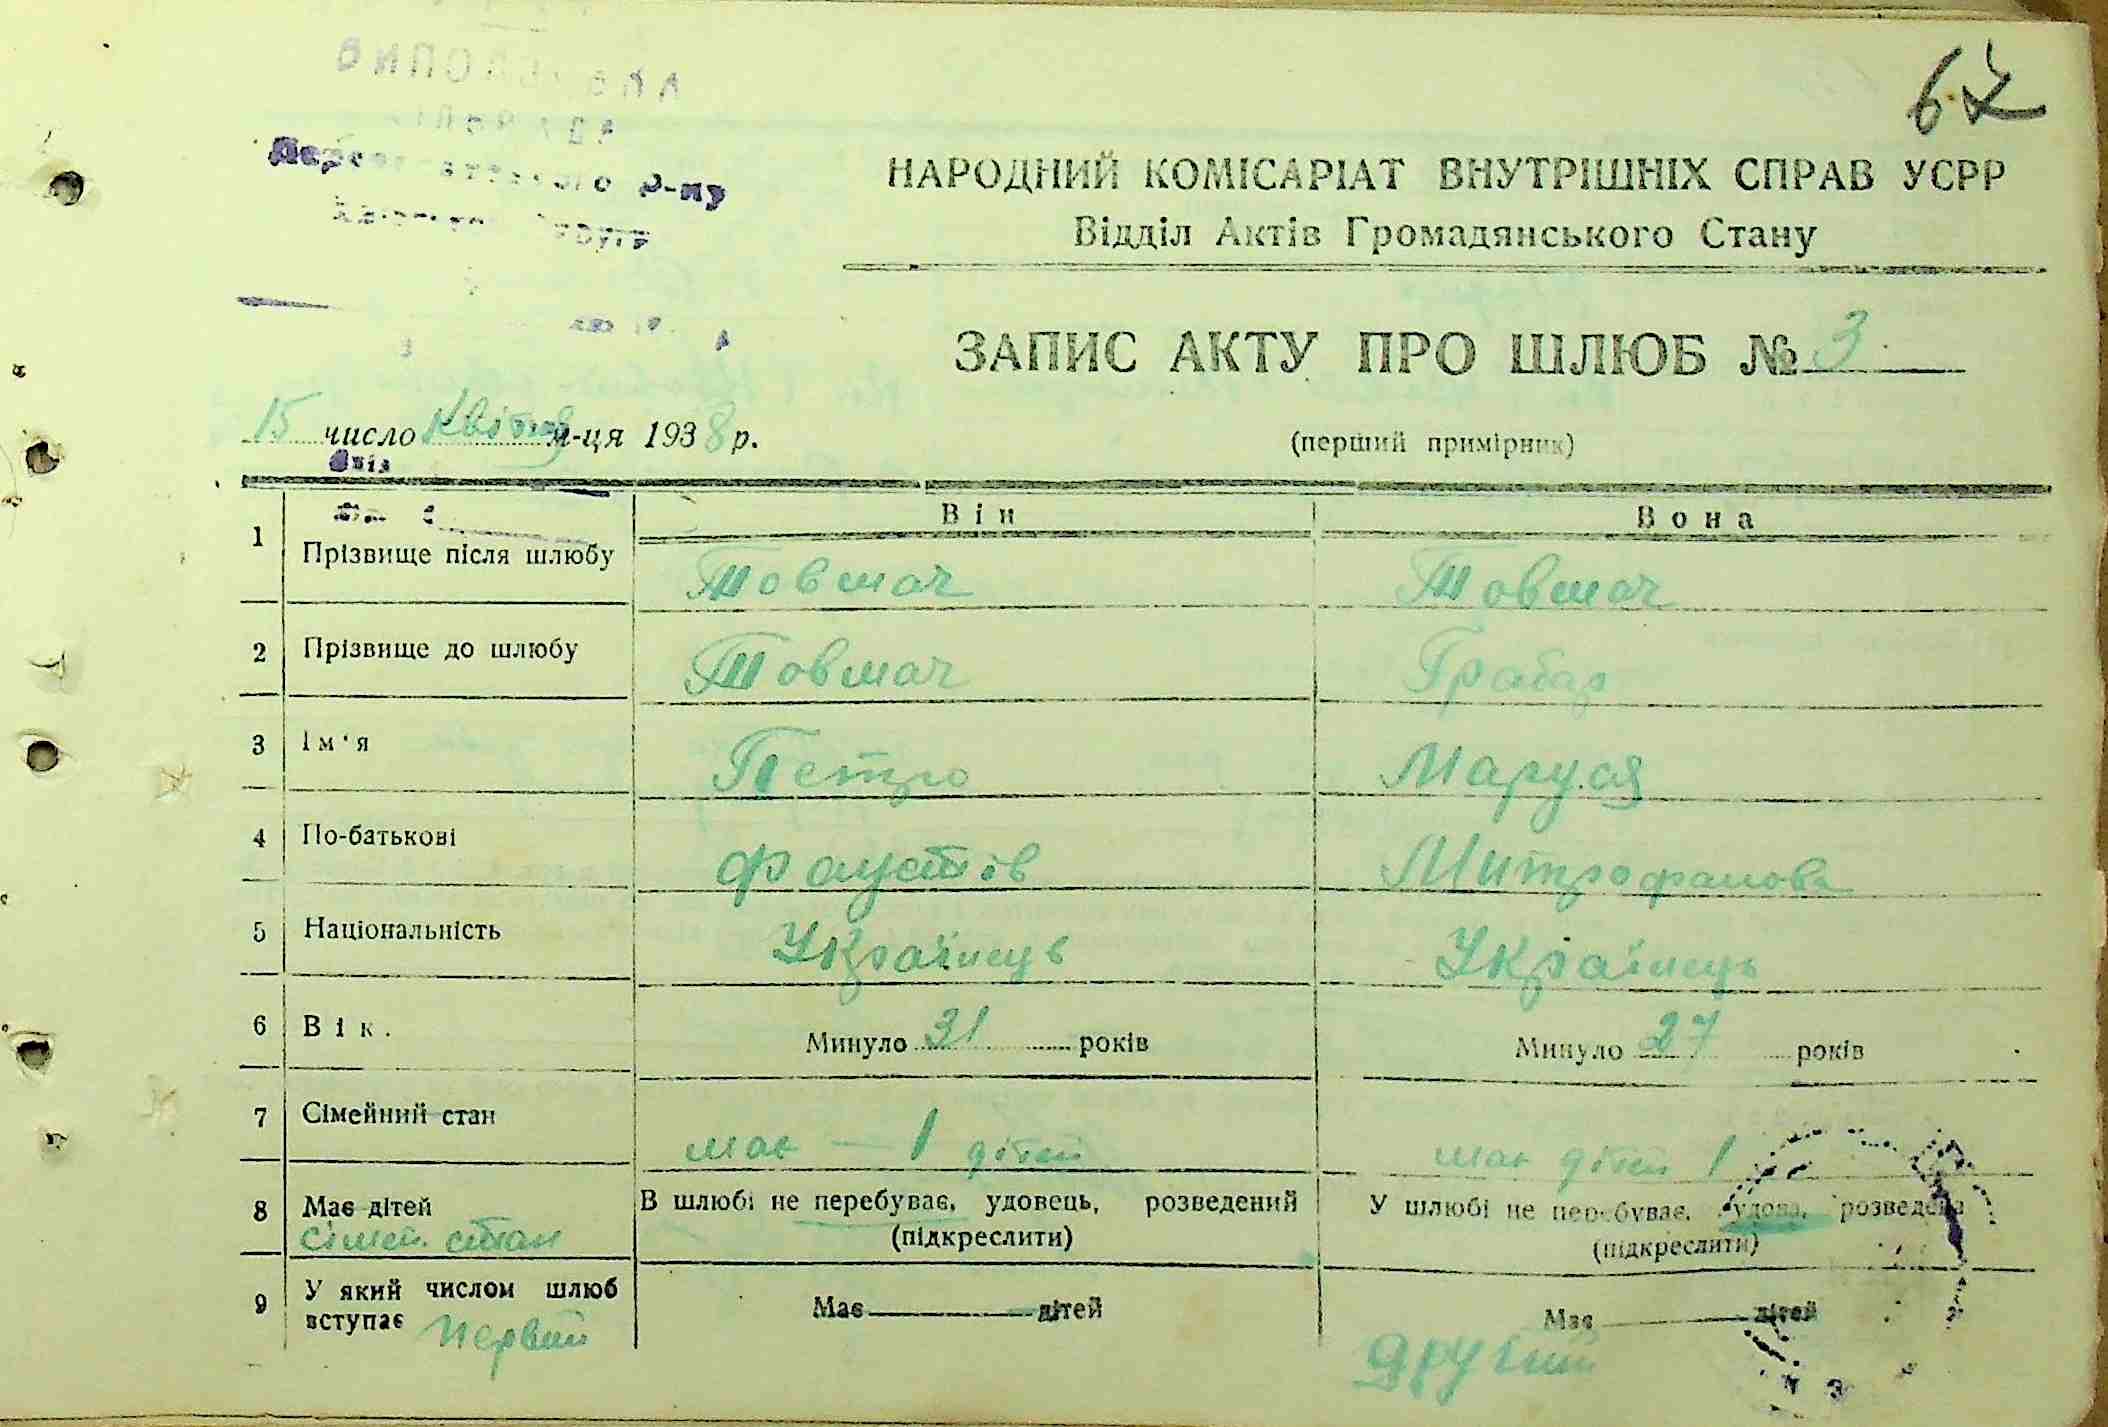 67
р-ну
НАРОДНИЙ КОМІСАРІАТ ВНУТРІШНІХ СПРАВ УСРР
Відділ Актів Громадянського Стану
ЗАПИС АКТУ ПРО ШЛЮБ № 3
15 число Квітня м-ця 1938 р.
(перший примірник)
Він Вона
1 Прізвище після шлюбу Товмач Товмач
2 Прізвище до шлюбу Товмач Грабар
3 Ім'я Петро Маруся
4 По-батькові Фаустів Митрофанова
5 Національність Українець Українець
6 Вік. Минуло 31 років Минуло 27 років
7 Сімейний стан має — 1 дітей має дітей 1
8 Має дітей В шлюбі не перебуває, удовець, розведений У шлюбі не перебуває, удова, розведена
сімей. стан (підкреслити) (підкреслити)
9 У який числом шлюб вступає Первий Має дітей Має дітей
Другий